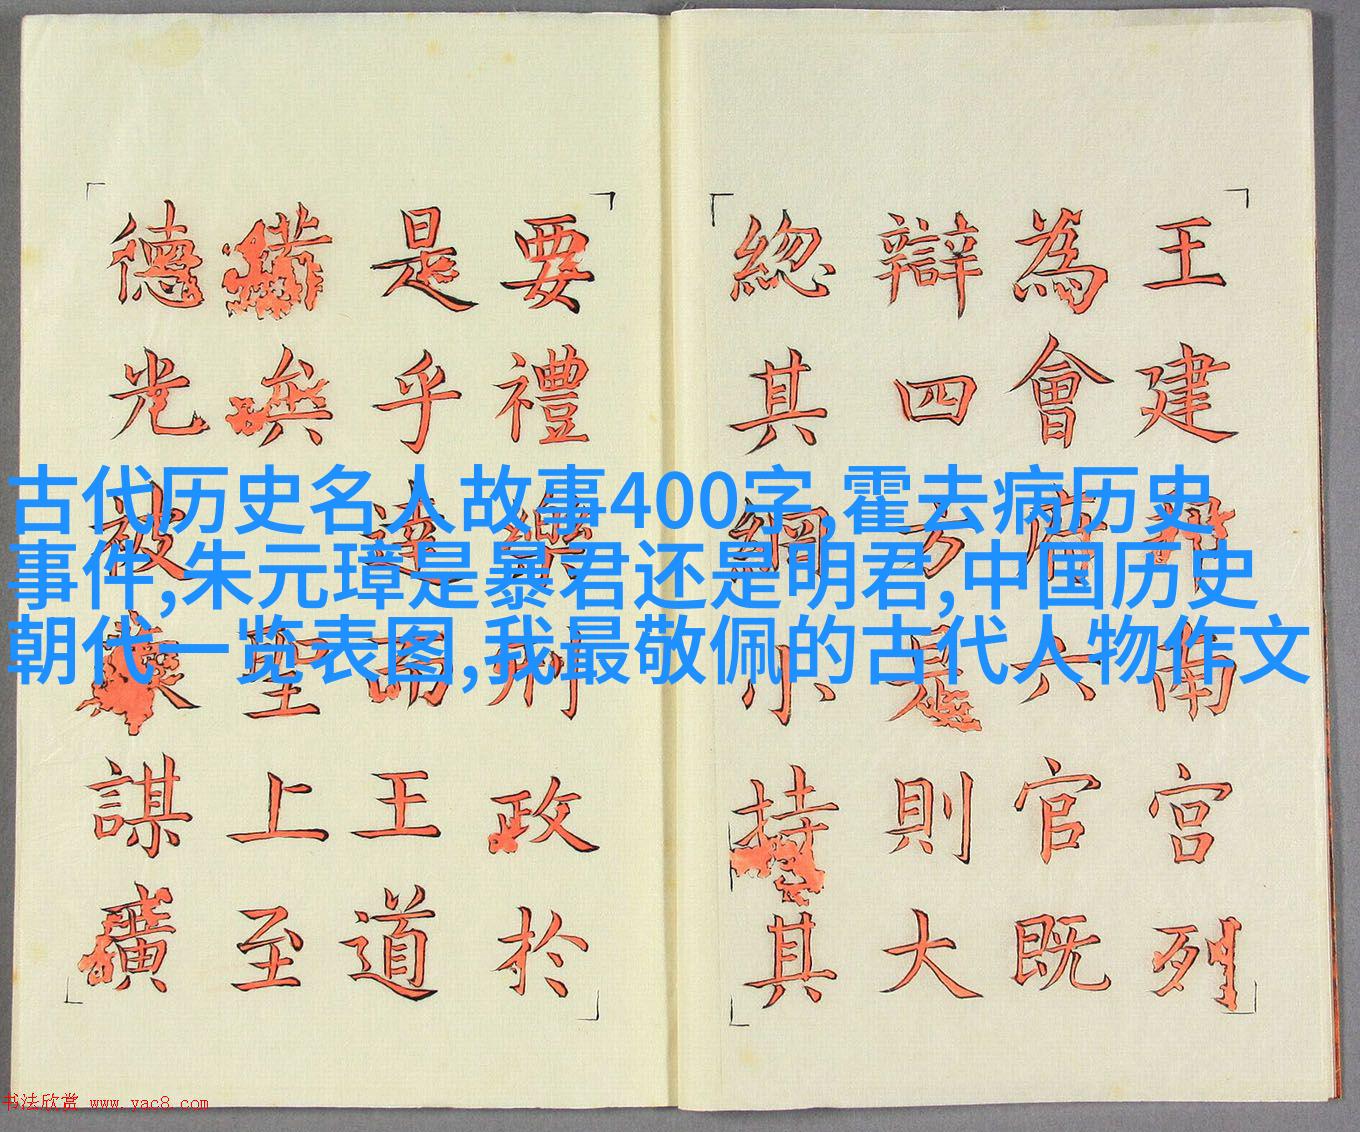 古代历史名人故事400字,霍去病历史
事件,朱元璋是暴君还是明君,中国历史
朝代一览表图,我最敬佩的古代人物作文
王建邦南宮列
為會府六官既
辯四方是則大
緫其綱小持其
要禮樂刑政於
是乎達而王道
矣聖上至
德光被謀
书法欣赏 www.yac8.com